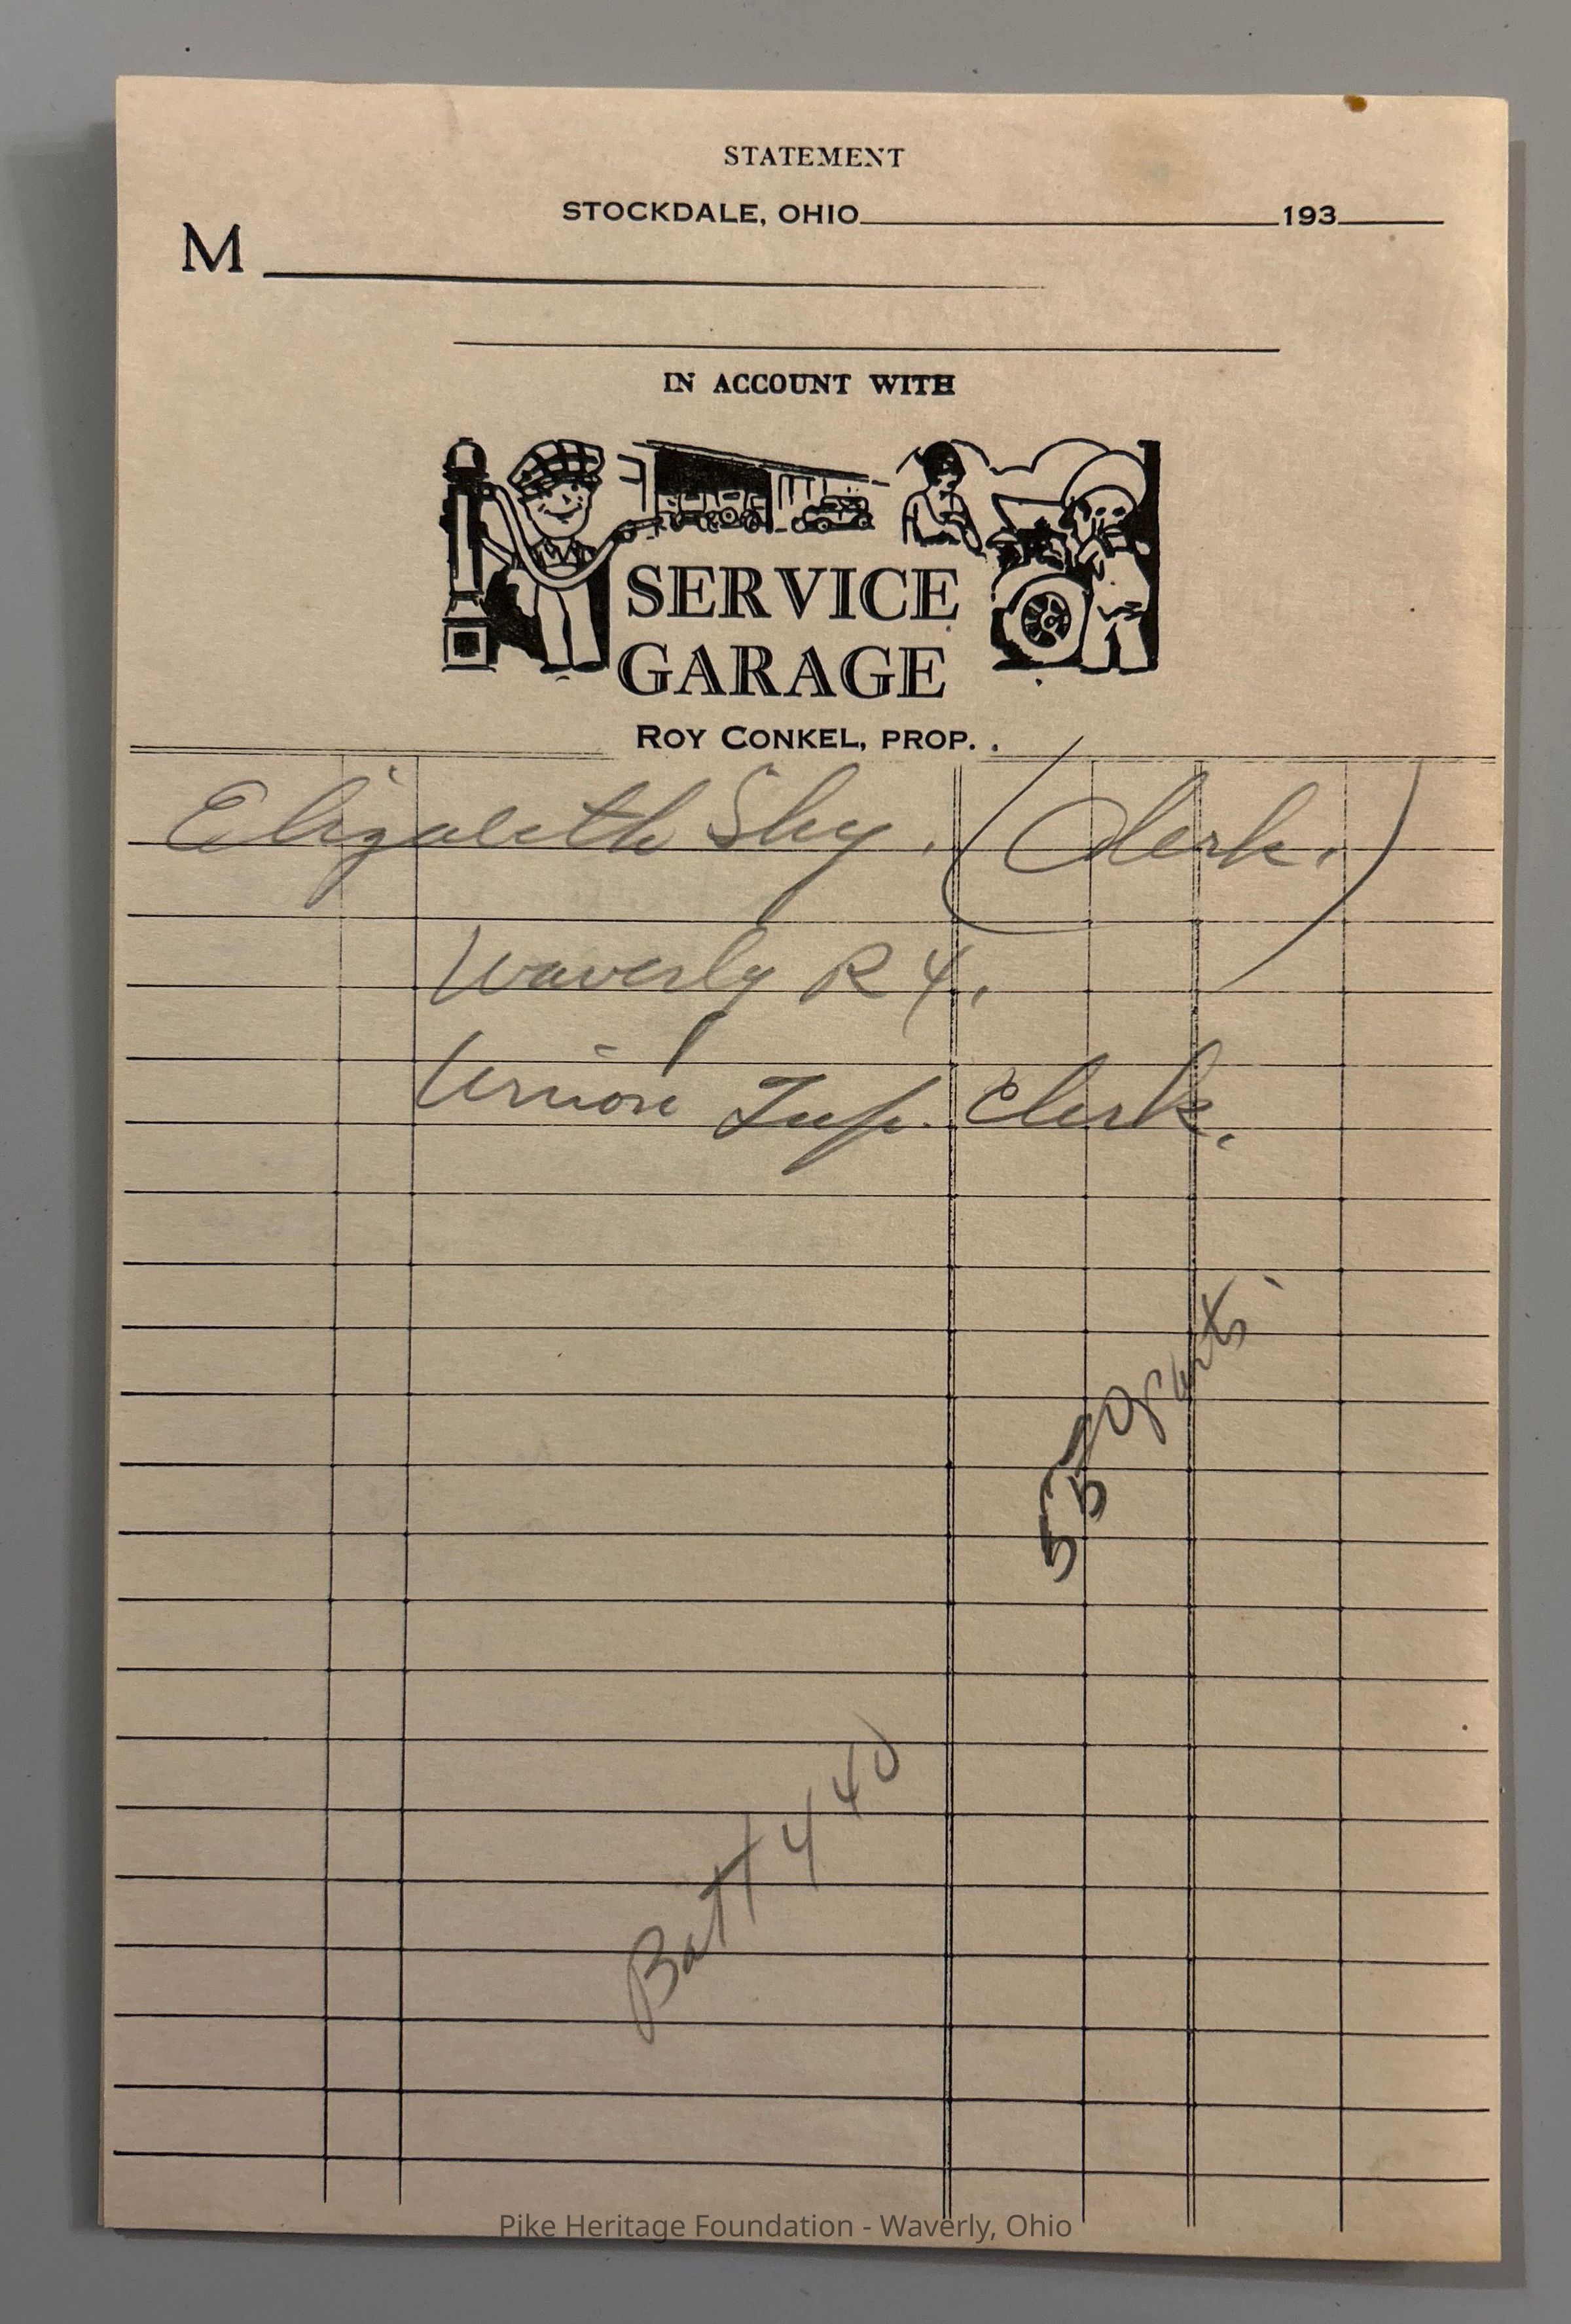 STATEMENT
STOCKDALE, OHIO 193
M
IN ACCOUNT WITH
SERVICE
GARAGE
ROY CONKEL, PROP.
Elizabeth Shy. (Clerk.)
Waverly R 4.
Union Twp. Clerk.
550 parts
Batt 4 40
Pike Heritage Foundation - Waverly, Ohio